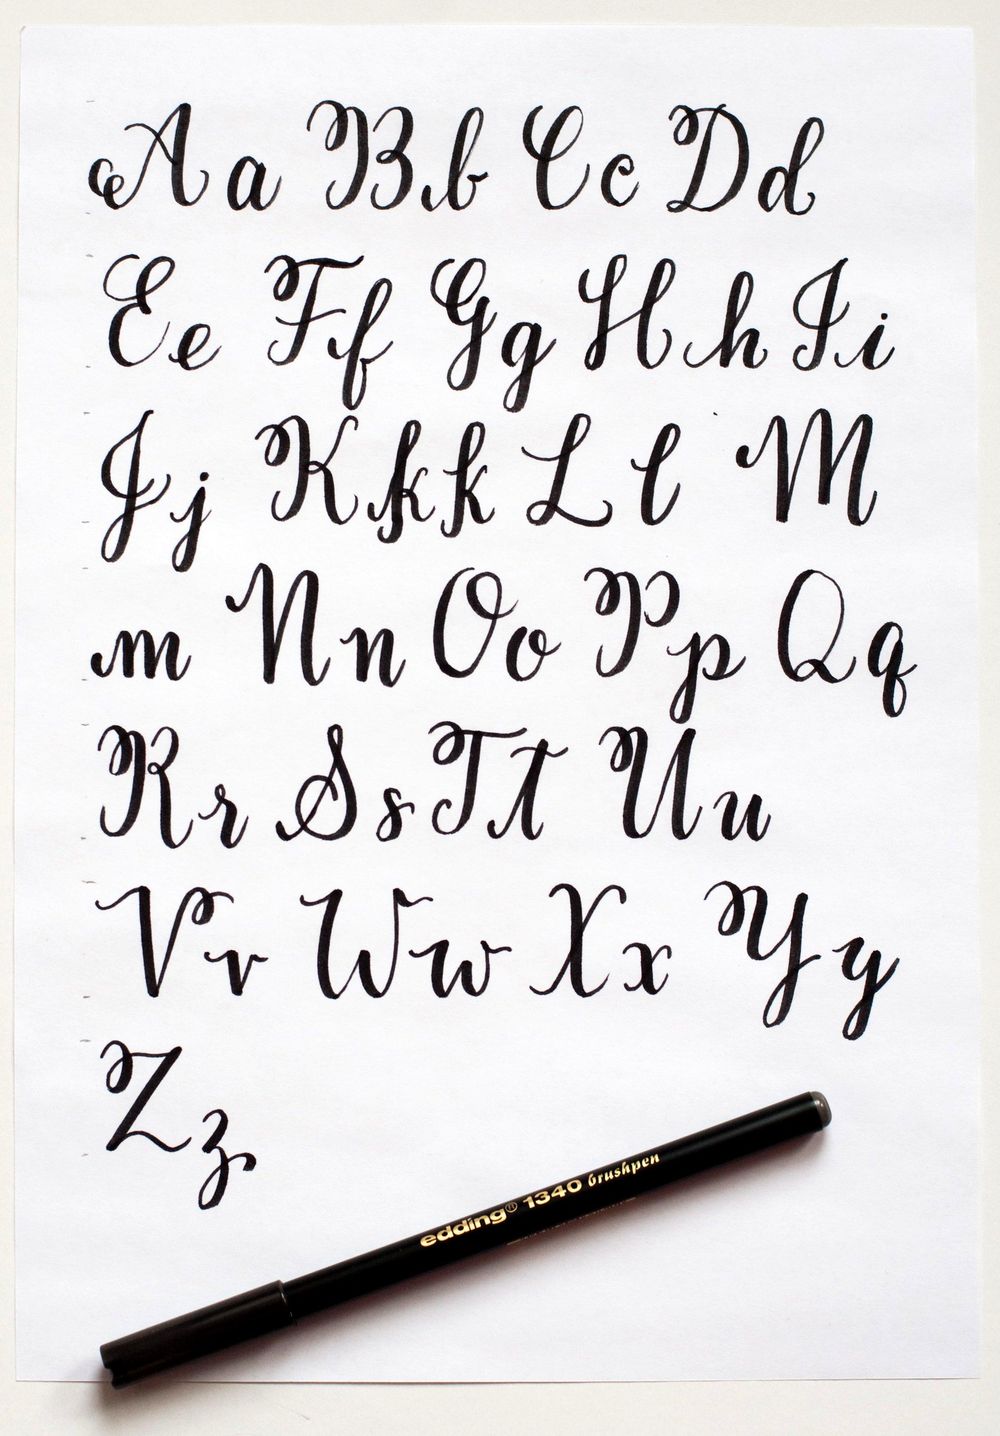 A a B b C c D d
E e F f G g H h I i
J j K k k L l M
m N n O o P p Q q
R r S s T t U u
V v W w X x Y y
Z z
edding® 1340 brushpen